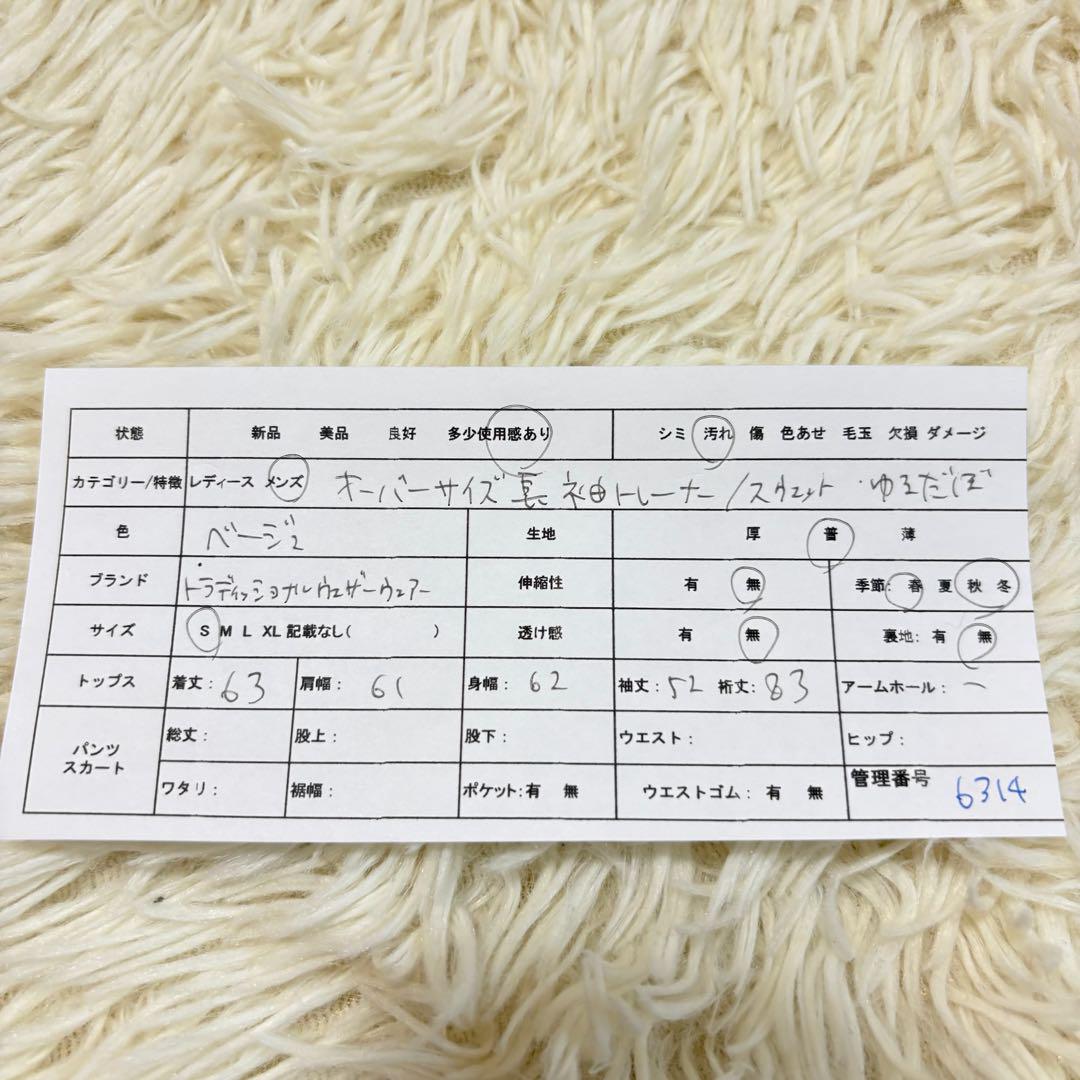 状態 新品 美品 良好 多少使用感あり シミ 汚れ 傷 色あせ 毛玉 欠損 ダメージ
カテゴリー/特徴 レディース メンズ オーバーサイズ 長袖トレーナー/スウェット・ゆるだぼ
色 ベージュ 生地 厚 普 薄
ブランド トラディッショナルウェザーウェアー 伸縮性 有 無 季節: 春 夏 秋 冬
サイズ S M L XL 記載なし( ) 透け感 有 無 裏地: 有 無
トップス 着丈: 63 肩幅: 61 身幅: 62 袖丈: 52 裄丈: 83 アームホール: ー
パンツ スカート 総丈: 股上: 股下: ウエスト: ヒップ:
ワタリ: 裾幅: ポケット: 有 無 ウエストゴム: 有 無 管理番号 6314